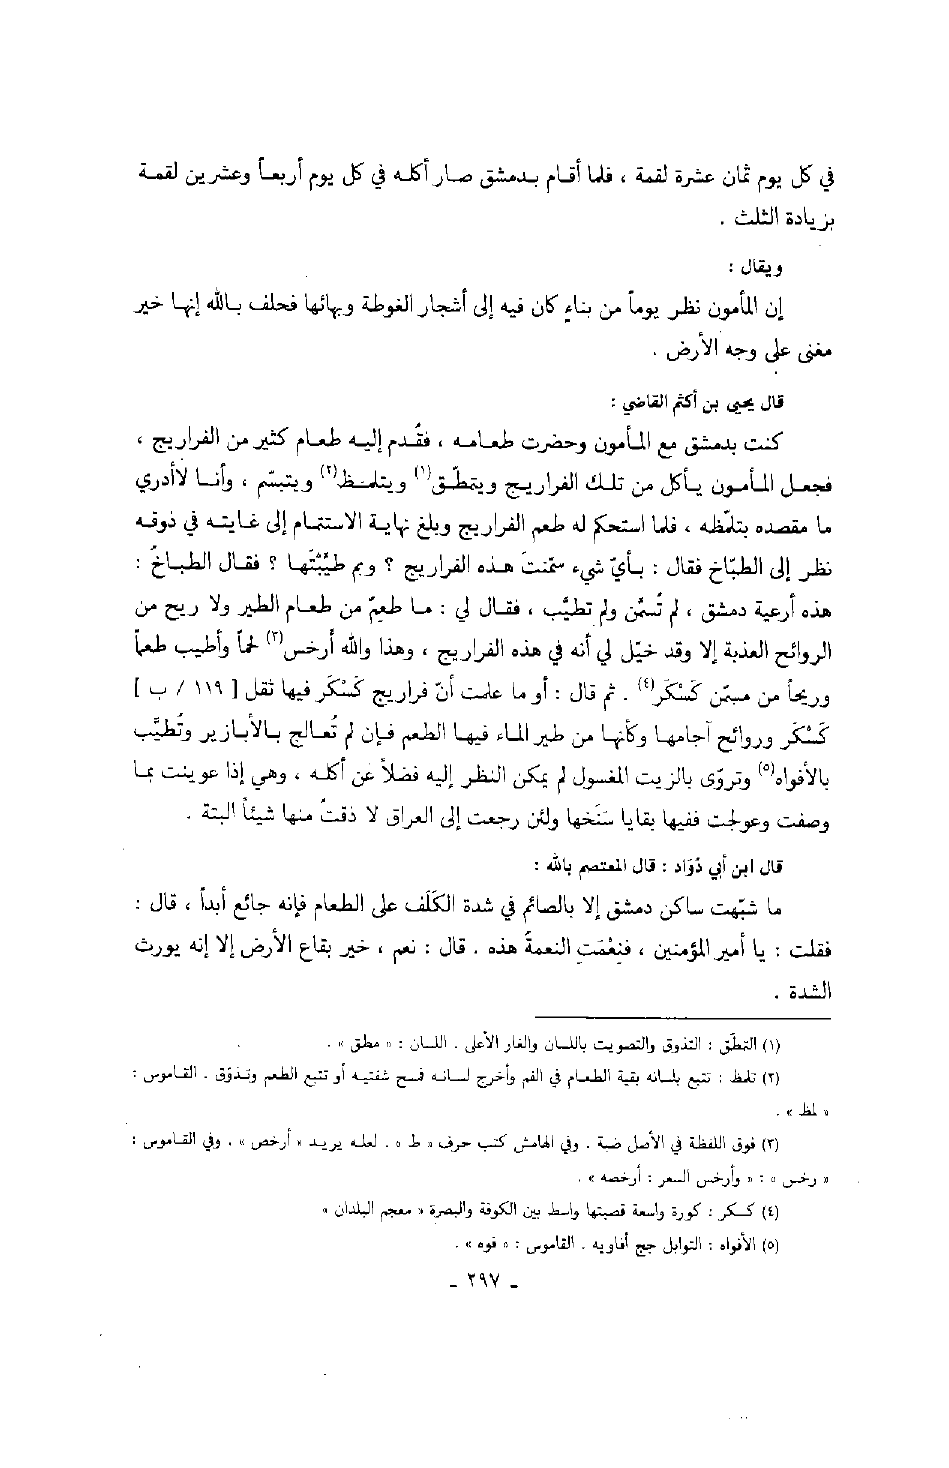 في كل يوم ثمان عشرة لقمة ، فلما أقام بدمشق صار أكله في كل يوم أربعاً وعشرين لقمة
بزيادة الثلث .
ويقال :
إن المأمون نظر يوماً من بناءٍ كان فيه إلى أشجار الغوطة وبهائها فحلف بالله إنها خير
مغنى على وجه الأرض .
قال يحيى بن أكثم القاضي :
كنت بدمشق مع المأمون وحضرت طعامه ، فقُدم إليه طعام كثير من الفراريج ،
فجعل المأمون يأكل من تلك الفراريج ويتمطّق(١) ويتلمظ(٢) ويتبسّم ، وأنا لاأدري
ما مقصده بتلمّظه ، فلما استحكم له طعم الفراريج وبلغ نهاية الاستتمام إلى غايته في ذوقه
نظر إلى الطبّاخ فقال : بأيّ شيء سمّنتَ هذه الفراريج ؟ وبم طيّبْتَها ؟ فقال الطباخُ :
هذه أرعية دمشق ، لم تُسمَّن ولم تطيَّب ، فقال لي : ما طعمٌ من طعام الطير ولا ريح من
الروائح العذبة إلا وقد خيّل لي أنه في هذه الفراريج ، وهذا والله أرخس(٣) لحماً وأطيب طعماً
وريحاً من مسمّن كَسْكَر(٤) . ثم قال : أو ما علمت أنّ فراريج كَسْكَر فيها ثقل [ ١١٩ / ب ]
كَسْكَر وروائح آجامها وكأنها من طير الماء فيها الطعم فإن لم تُعالج بالأبازير وتُطيَّب
بالأفواه(٥) وتروّى بالزيت المغسول لم يمكن النظر إليه فضلاً عن أكله ، وهي إذا عوينت بما
وصفت وعولجت ففيها بقايا سَنَخها ولئن رجعت إلى العراق لا ذقتُ منها شيئاً البتة .
قال ابن أبي دُوَاد : قال المعتصم بالله :
ما شبّهت ساكن دمشق إلا بالصائم في شدة الكَلَف على الطعام فإنه جائع أبداً ، قال :
فقلت : يا أمير المؤمنين ، فنِعْمَتِ النعمةُ هذه . قال : نعم ، خير بقاع الأرض إلا إنه يورث
الشدة .
(١) التمطّق : التذوق والتصويت باللسان والغار الأعلى . اللسان : « مطق » .
(٢) تلمظ : تتبع بلسانه بقية الطعام في الفم وأخرج لسانه فمسح شفتيه أو تتبع الطعم وتذوّق . القاموس :
« لمظ » .
(٣) فوق اللفظة في الأصل ضبة . وفي الهامش كتب حرف « ط » . لعله يريد « أرخص » ، وفي القاموس :
« رخس » : « وأرخس السعر : أرخصه » .
(٤) كسكر : كورة واسعة قصبتها واسط بين الكوفة والبصرة « معجم البلدان »
(٥) الأفواه : التوابل جج أفاويه . القاموس : « فوه » .
- ٢٩٧ -